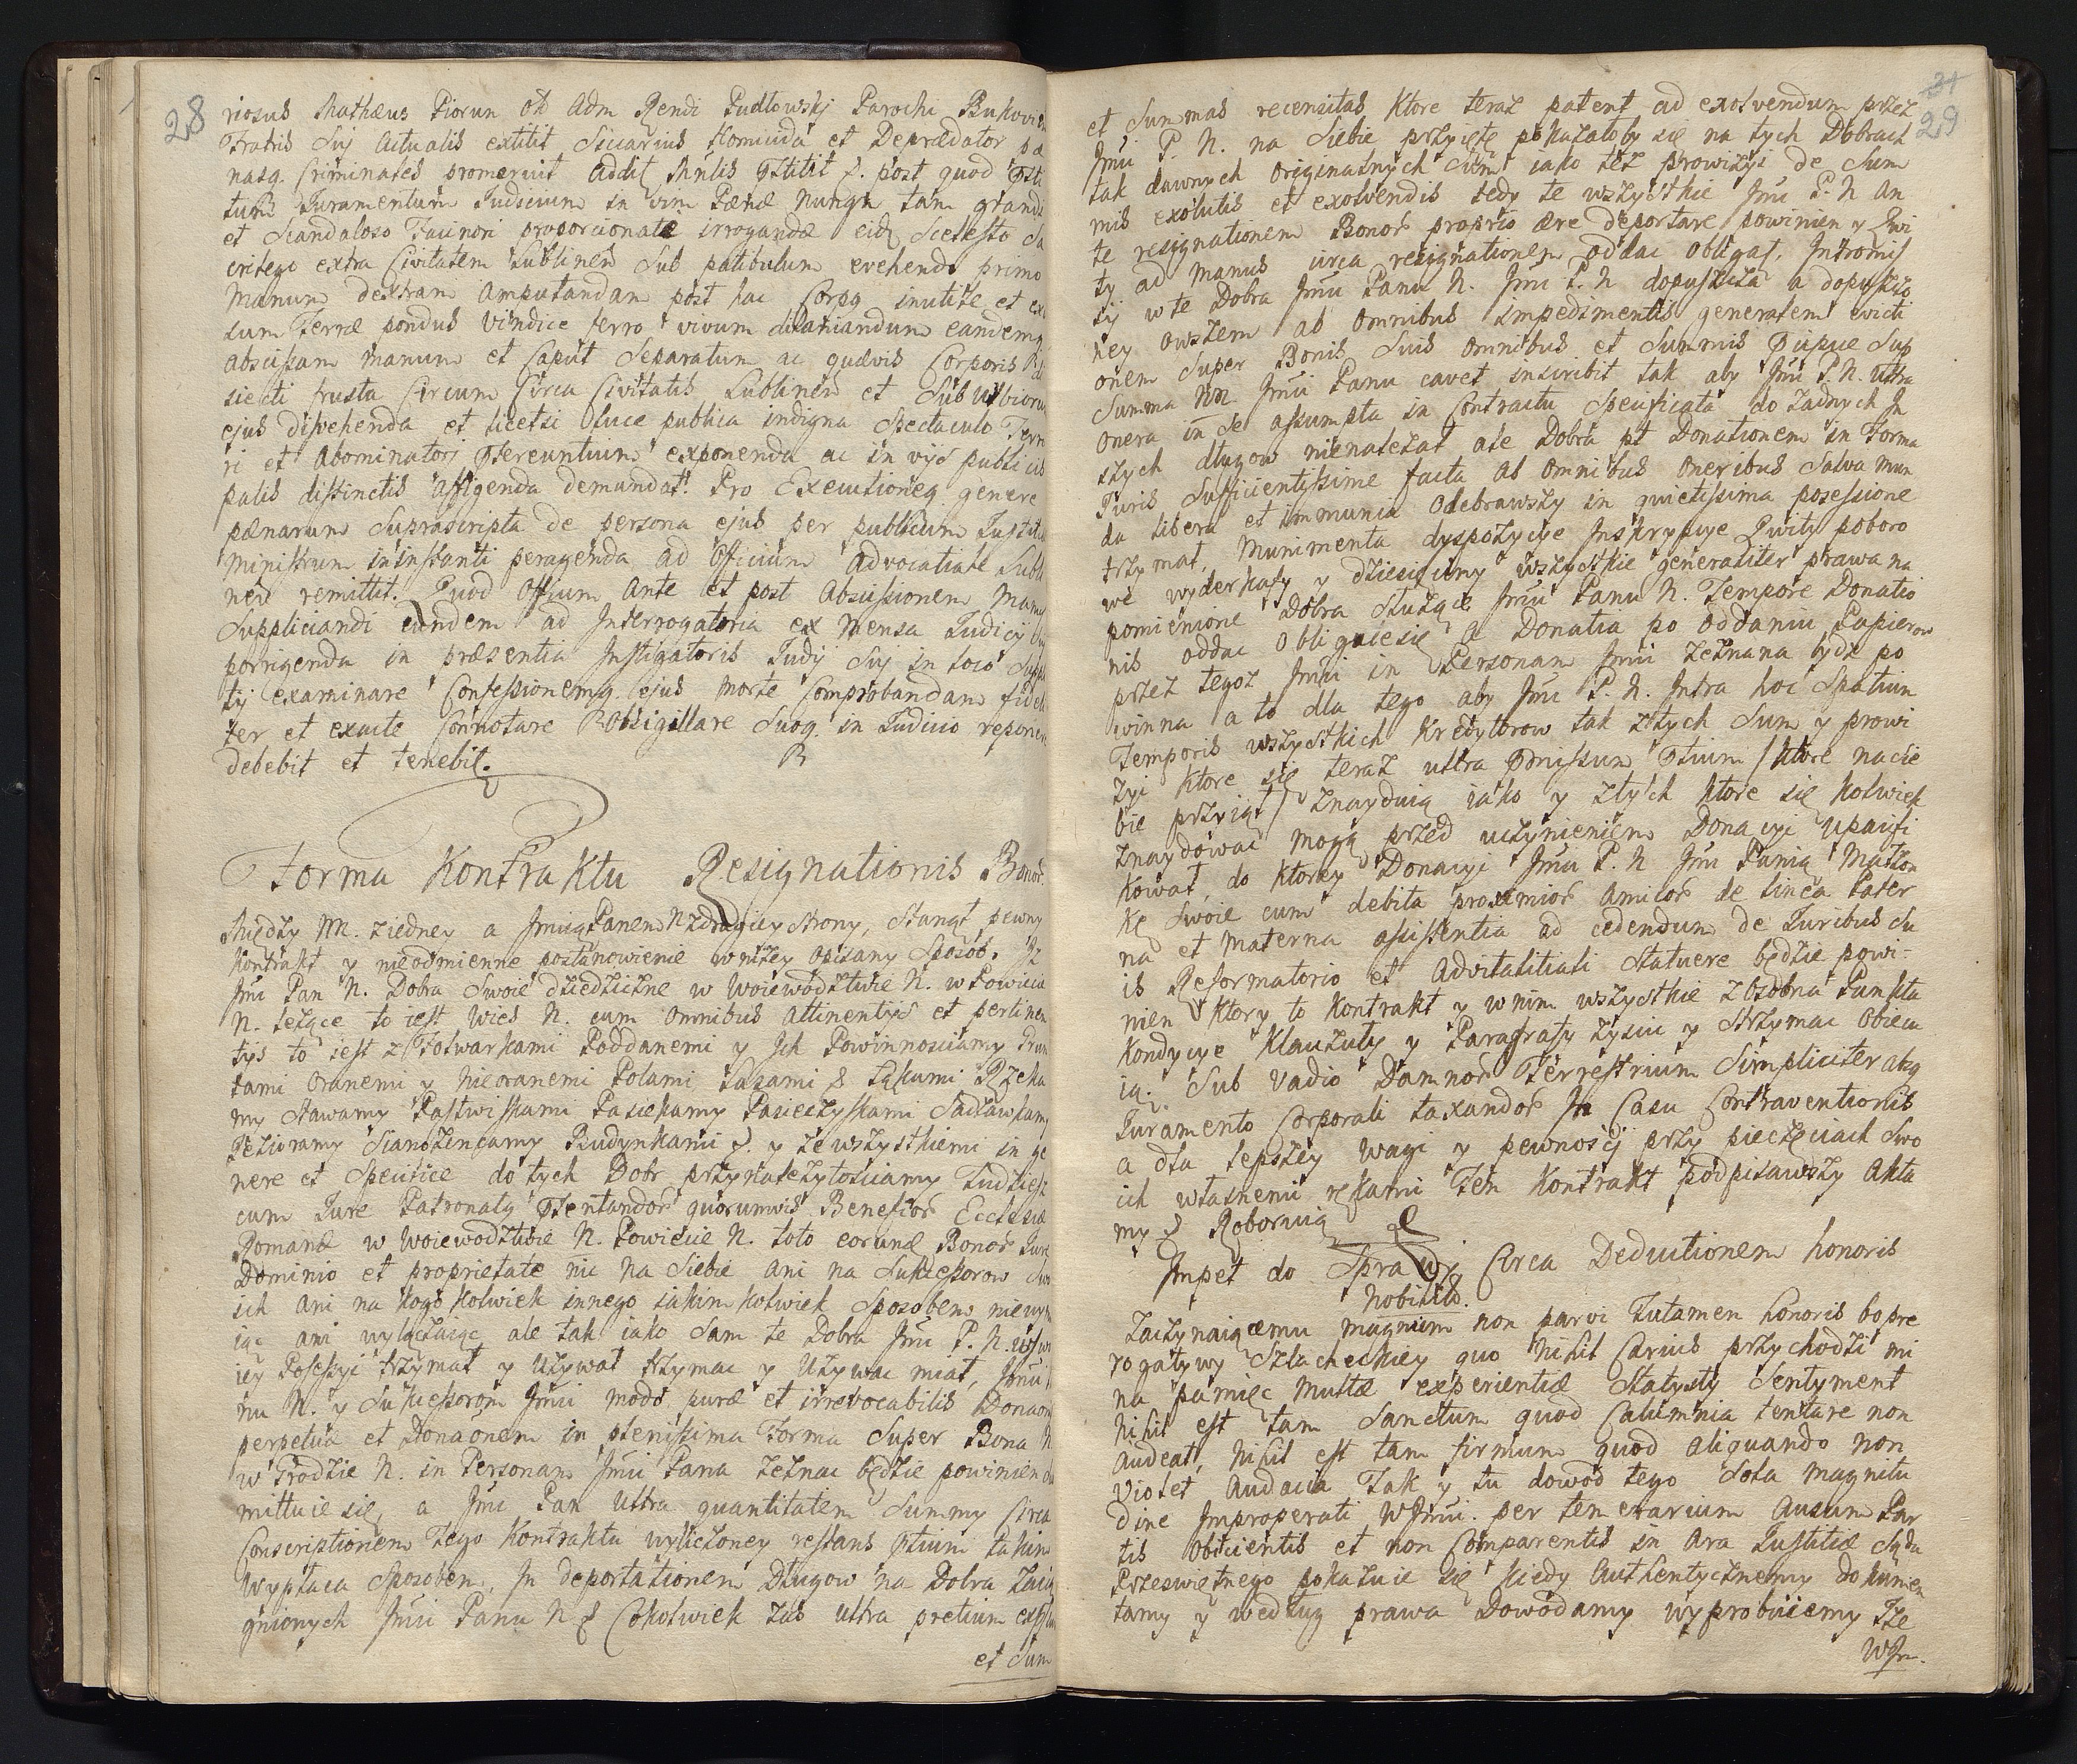 28
riosus Mathæus Piorun ob Adm Rendi Pudlowskj Parochi
Fratris Sui Actualis extitit Sicarius Homicida et Deprædator
nasq. Criminales promeruit addit
tum Juramentum Judicium in vim Pænæ nunqn tam grandi
et Scandaloso Facinori proporcionatæ irrogandæ eidq Scelesto Sa
crilego extra Civitatem Lublinen Sub patibulum evehendo primo
Manum dextram Amputandam post hac Corpq inutile et ex
sum Terræ pondus Vindice ferro vivum dilaniandum eandemq
abscissam manum et Caput Separatum ac quævis Corporis
siecti frusta Circum Circa Civitatis Lublinen et Suburbioru
ejus disvehenda et licetsi luce publica indigna Spectaculo Terro
ri et Abominatioj Ptereuntium exponenda ac in vijs publicis
palis distinctis affigenda demandat. Pro Executioneq genere
pænarum Suprascripta de persona ejus per publicum Justitiæ
Ministrum in instanti peragenda ad Officium Advocatiale Lubli
nen remittit. Quod Offium Ante et post Abscissionem Manus
Suppliciandi eundem ad Interrogatoria ex Mensa Judicij
porrigenda in præsentia Instigatoris Judij Sui in loco Suppli
tij examinare Confessionemq ejus morte Comprobandam fideli
ter et exacte Connotare Robsigillare Suoq. in Judicio reponere
debebit et tenebit.
Forma Kontraktu Resignationis Bonor.
Między NN. z iedney a Jmcią Panem N z drugiey Strony, Stanął pewny
Kontrakt y nieodmienne postanowienie w niżey opisany Sposob. Iz
Jmć Pan N. Dobra Swoie dziedziczne w Woiewodztwie N. w Powiecie
N. leżące to iest Wieś N. cum omnibus Attinentijs et pertinen
tijs to iest z Folwarkami Poddanemi y Ich Powinnosciamy Grun
tami Oranemi y Nieoranemi Polami, Lasami & Łąkami Rzeka
my Stawamy Pastwiskami Pasiekamy Pasieczyskami Sadzawkamy
Jezioramy Sianożenciamy Budynkami &. y ze wszystkiemi in ge
nere et Specifice do tych Dobr przynależytościamy Tudziesz
cum Jure Patronatq Ptentandor quorumvis Beneficior Ecclesiæ
Romanæ w Woiewodztwie N. Powiecie N. toto eorundæ Bonor Jure
Dominio et proprietate nic na Siebie ani na Sukcessorow Swo
ich ani na kogo kolwiek innego iakimkolwiek Sposobem
iąc ani wyłączaiąc ale tak iako Sam te Dobra Jmć P. N.
iey Possessyi trzymał y Używał trzymac y Używac miał, Jmci
nu N. y Sukcessorom Jmci modo puræ et irrevocabilis Donaon
perpetuæ et Donaonem in plenissima Forma Super Bona N
w Grodzie N. in Personam Jmci Pana zeznac będzie powinien
mittuie się, a Jmć Pan Ultra quantitatem Summy Circa
Conscriptionem Tego Kontraktu wyliczoney restans Ptium takim
Wypłaca Sposobem, In deportationem Długow na Dobra
gnionych Jmci Panu N & Cokolwiek zas Ultra pretium
et Sum
31
29
et Summas recensitas Ktore teraz patent ad exolvendum przez
Jmci P. N. na Siebie przyięte pokazałoby się na tych Dobrach
tak dawnych Originalnych Sum iako tez prowizyi de Sum
mis exolutis et exolvendis tedy te wszystkie Jmć P. N an
te resignationem Bonor proprio ære deportare powinien y Qwi
ty ad manus circa resignationem oddac Obligat. Intromis
sij w te Dobra Jmci Panu N. Jmć P. N dopuszcza a dopuszczo
ney owszem ab omnibus impedimentis generalem evicti
onem Super Bonis Suis omnibus et Summis Pcipue Sup
Summa NN Jmci Panu cavet inscribit tak aby Jmć P. N. Ultra
onera in Se assumpta in Contractu Specificata do żadnych In
szych dlugow nienależał ale Dobra pt Donationem in Forma
Juris Sufficientissime facta ab omnibus oneribus Salva mun
da libera et immunia Odebrawszy in quietissima posessione
trzymał, Munimenta dyspozycye Inskrypcye Qwity poboro
we wyderkasy y dziesięciny wszystkie generaliter prawa na
pomienione Dobra Służące Jmci Panu N. Tempore Donatio
nis oddac Obliguie się a Donatia po oddaniu Papierow
przez tegoz Jmci in Personam Jmci Zeznana bydz po
winna a to dla tego aby Jmć P. N. Intra hoc Spatium
Temporis wszystkich Kredytorow tak ztych Sum y prowi
zyi ktore się teraz ultra Pmissum Ptium (ktore na Sie
bie przyiął) znayduią iako y ztych ktore się kolwiek
znaydować mogą przed uczynieniem Donacyi Upacifi
kowal, do ktorey Donacyi Jmć P. N Jmć Panią Małzon
kę Swoie cum debita proximior amicor de linea Pater
na et Materna assistentia ad cedendum de Juribus Su
is Reformatorio et Advitalitiali Statuere będzie powi-
nien Ktory to Kontrakt y w nim wszystkie Zosobna Punkta
Kondycye Klauzuły y Paragrafy Zyscic y Strzymac Obiecu
ią. Sub Vadio Damnor Terrestrium Simpliciter absq
Juramento Corporali taxandor In Casu Contraventionis
a dla lepszey wagi y pewnośći przy pieczęciach Swo
ich własnemi rękami Ten Kontrakt podpisawszy Akta
my & Roboruią
Impet do Sprawy Circa Deductionem honoris
Nobilis.
Zaczynaiącemu magnum non parvi Tutamen honoris bo pre
rogatywy Szlacheckiey quo Nihil Carius przychodzi mi
na pamięc Multæ experientiæ Statysty Sentyment
Nihil est tam Sanctum quod Calumnia tentare non
audeat, Nihil est tam firmum quod aliquando non
violet Audacia Tak y tu dowod tego Sola magnitu
dine Improperati WJmci. per temerarium Ausum Par
tis Obiicientis et non Comparentis in Ara Justitiæ Sądu
Przeswiętnego pokazuie Się kiedy Authentycznemy dokumen
tamy y według prawa Dowodamy wyprobuiemy Ze
WJm.